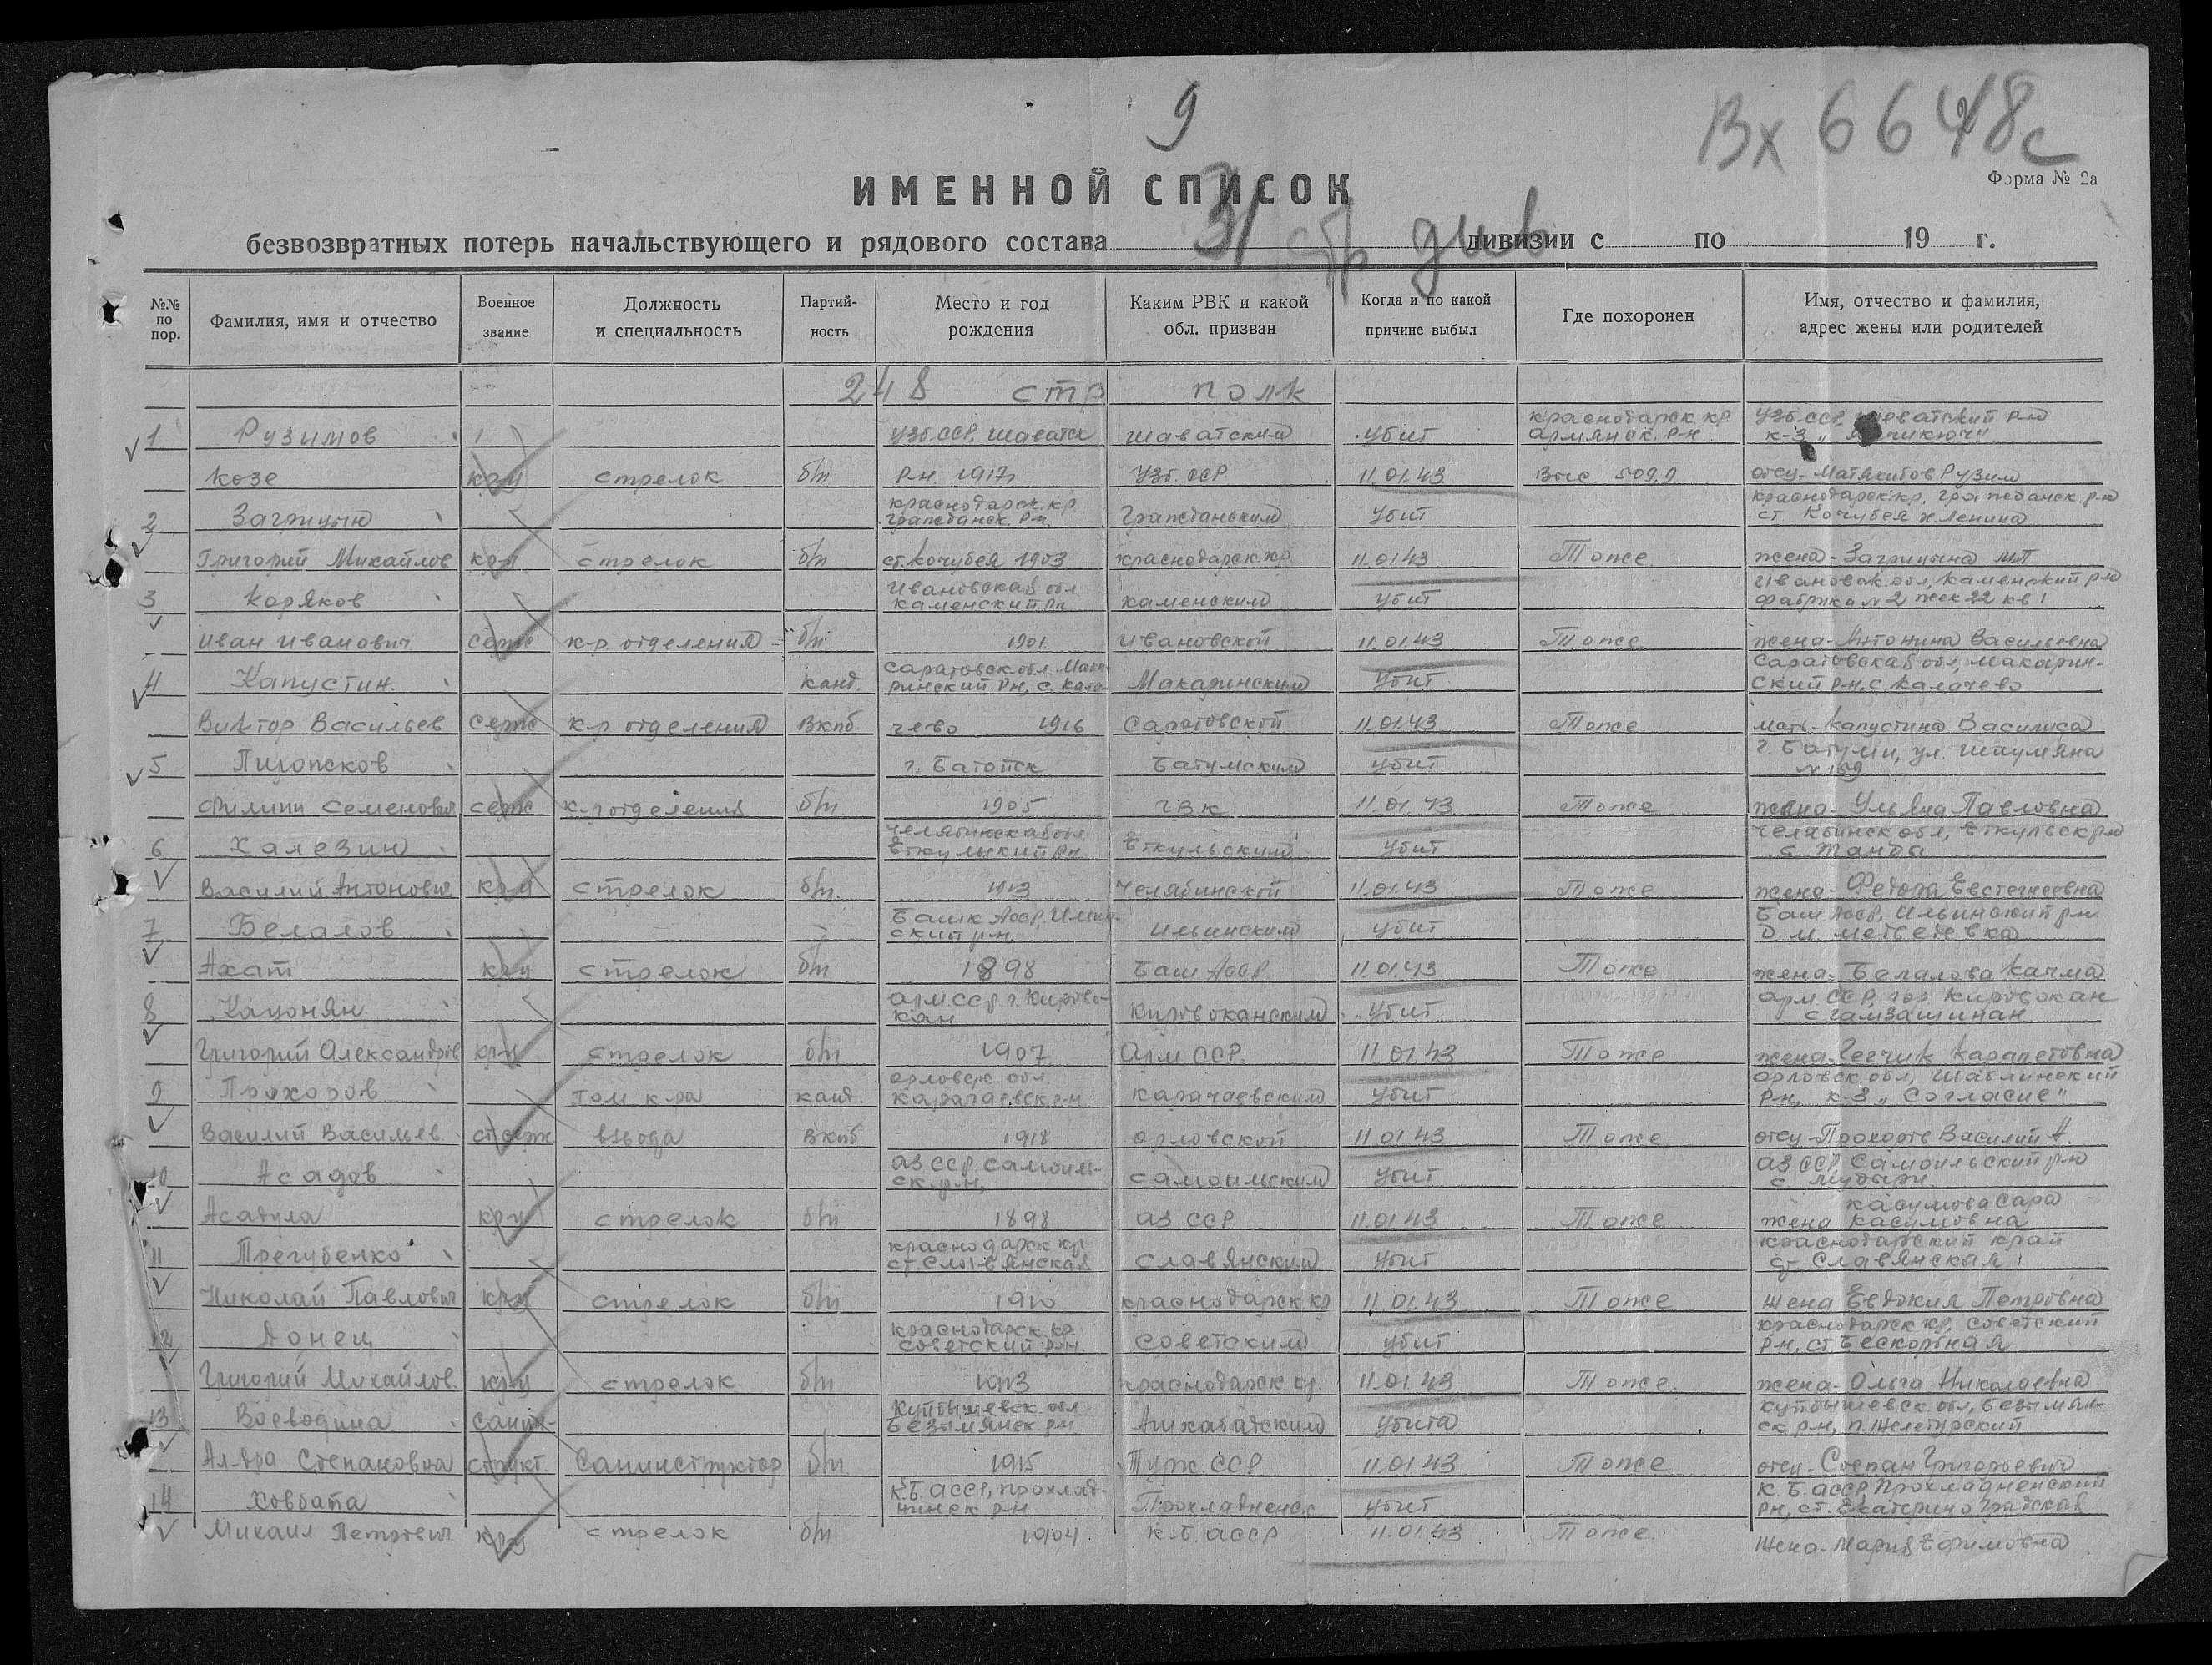 9
Вх 6648с
ИМЕННОЙ СПИСОК
Форма № 2а
безвозвратных потерь начальствующего и рядового состава 31 стр див дивизии с по 19 г.
№№ по пор.
Фамилия, имя и отчество
Военное звание
Должность и специальность
Партийность
Место и год рождения
Каким РВК и какой обл. призван
Когда и по какой причине выбыл
Где похоронен
Имя, отчество и фамилия, адрес жены или родителей
248 стр полк
1 Рузимов узб.ССР, Шаватск Шаватским убит краснодарск. кр армянск. р-н узб.ССР, Шаватский р-н
к-з
Козе кр-ц стрелок б/п р-н. 1917г узб. ССР 11.01.43 Выс. 509,9 отец-Матякубов Рузим
2 краснодарск. кр. гражданск. р-н. Гражданским убит краснодарск.кр, гражданск. р-н
ст. Кочубея х Ленина
Григорий Михайлов кр-ц стрелок б/п ст. Кочубея 1903 краснодарск.кр 11.01.43 Тоже жена-
3 Коряков Ивановская обл. Каменский рн Каменским убит Ивановск. обл, Каменский р-н
фабрика №2 жск 22 кв 1
Иван Иванович серж к-р отделения б/п 1901 Ивановской 11.01.43 Тоже жена-Антонина Васильевна
4 Капустин канд. Саратовск.обл. Макаринский рн, с. Кала- Макаринским убит Саратовская обл, Макарин-
ский р-н, с. Калачево
Виктор Васильев серж к-р отделения Вкпб. чево 1916 Саратовской 11.01.43 Тоже мать-Капустина Василиса
5 г. Батайск Батумским убит г. Батуми, ул. Шаумяна
№ 169
Филипп Семенович серж к-р отделения б/п 1905 ГВК 11.01.43 Тоже жена-Ульяна Павловна
6 Халезин Челябинская обл Еткульский рн Еткульским убит Челябинск обл, Еткульск р-н
с
Василий Антонович кр-ц стрелок б/п. 1913 Челябинской 11.01.43 Тоже жена-Федора
7 Белалов Башк АССР, Ильинский р-н. Ильинским убит Баш. АССР, Ильинский р-н.
Д. М. Медведевка
Ахат кр-ц стрелок б/п 1898 Баш АССР 11.01.43 Тоже жена-Белалова
8 Арм. ССР г. Кировокан Кировоканским убит арм. ССР, гор. Кировокан
Григорий Александров кр-ц стрелок б/п 1907 Арм ССР. 11.01.43 Тоже жена- Карапетовна
9 Прохоров пом к-ра канд. Орловск. обл. Карачаевск р-н Карачаевским убит Орловск. обл, Шаблинский
р-н, к-з „Согласие"
Василий Васильев. ст серж взвода Вкпб 1918 Орловской 11.01.43 Тоже отец-Прохоров Василий А.
10 Асадов Аз ССР, Самоильск. р-н, Самоильским убит Аз ССР, Самоильский р-н
с.
Асадула кр-ц стрелок б/п 1898 Аз ССР 11.01.43 Тоже жена Касумова Сара Касумовна
11 Трегубенко краснодарск кр ст Славянская Славянским убит краснодарский край
ст Славянская
Николай Павлович кр-ц стрелок б/п 1910 краснодарск кр 11.01.43 Тоже жена Евдокия Петровна
12 Донец краснодарск. кр. Советский р-н. Советским убит краснодарск кр, Советский
р-н, ст Бескорбная
Григорий Михайлов. кр-ц стрелок б/п 1913 краснодарск кр. 11.01.43 Тоже. жена-Ольга Николаевна
13 Воеводина санин- Куйбышевск. обл Безымянск. р-н Ашхабадским убита Куйбышевск обл, Безымян-
ск р-н, п.
Ал-дра Степановна структ. Санинструктор б/п 1915 Турк. ССР 11.01.43 Тоже отец-Степан Григорьевич
14 К.Б. АССР, Прохладнинск р-н Прохладненск убит К.Б. АССР Прохладненский
рн, ст. Екатериноградская
Михаил Петрович кр-ц стрелок б/п 1904 К.Б. АССР 11.01.43 Тоже. жена-Мария Ефимовна